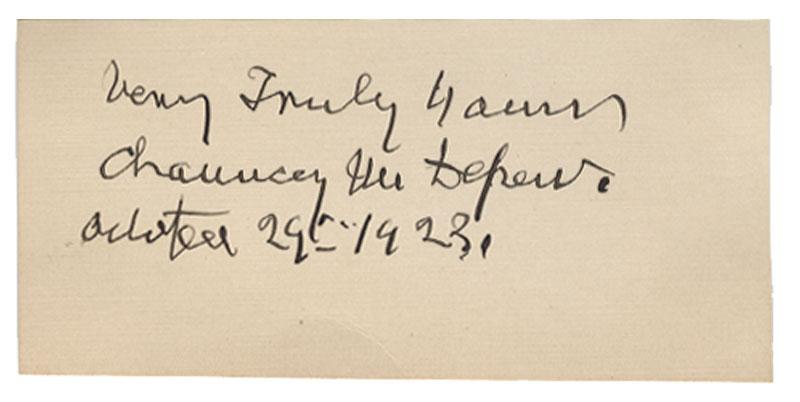 Very Truly Yours
Chauncey M Depew.
October 29th 1923.